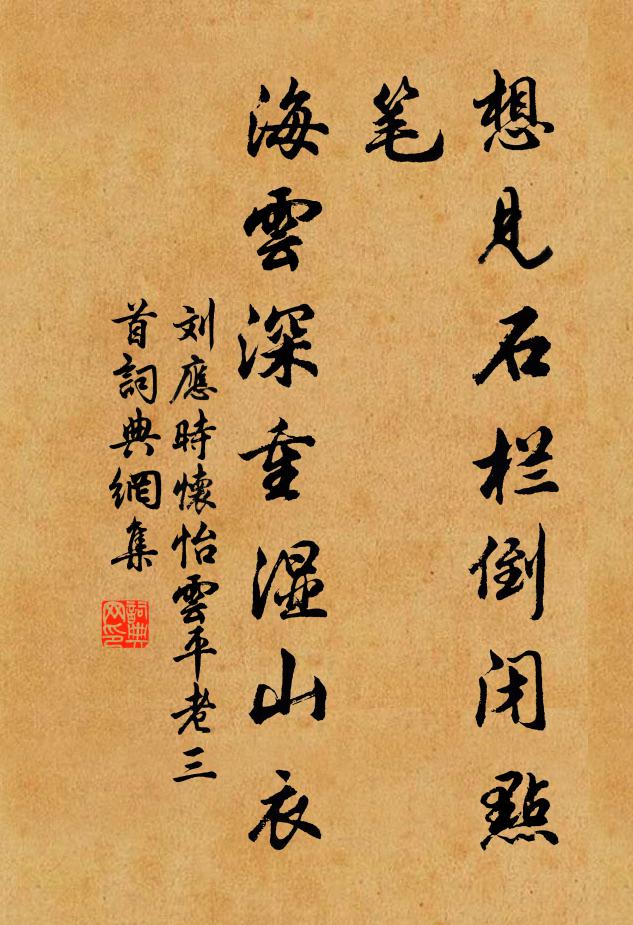 想見石栏倒闭點
笔
海雲深重湿山衣
刘應時懷怡雲平老三
首詞典網集
詞典
网印